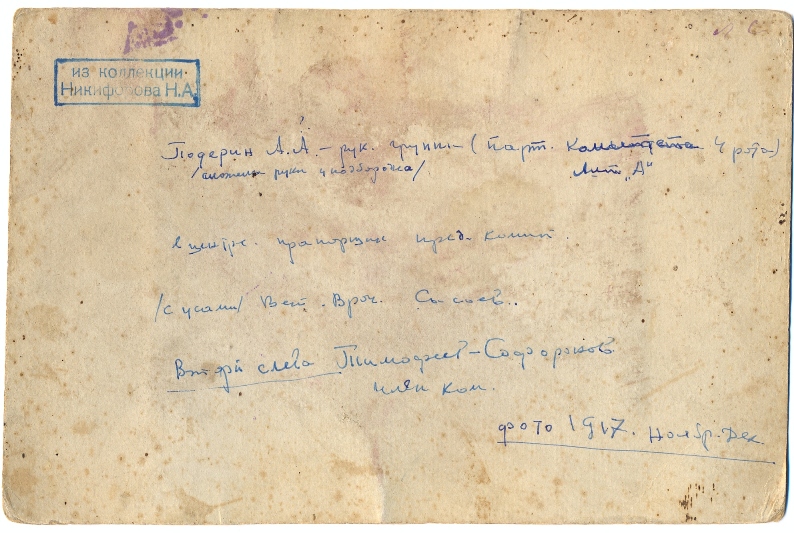 из коллекции
Никифорова Н.А.
?
Подерин А.А. – рук. группы (парт. Комитета 4 рота)
/сложены руки у подбородка/ Лит „А"
в центре прапорщик пред. комит.
/с усами/ Вет. Врач. Сысоев..
Второй слева Тимофеев-
член Ком.
фото 1917. Ноябр-Дек.